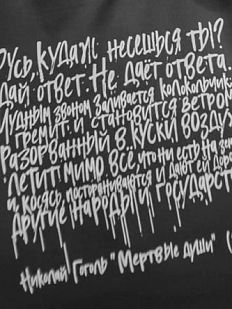 Русь, куда ж несешься ты?
Дай ответ. Не даёт ответа.
Чудным звоном заливается колокольчик;
гремит и становится ветром
разорванный в куски воздух
летит мимо всё, что ни есть на
и, косясь, постораниваются и дают ей
другие народы и государст
Николай Гоголь "Мертвые души" (